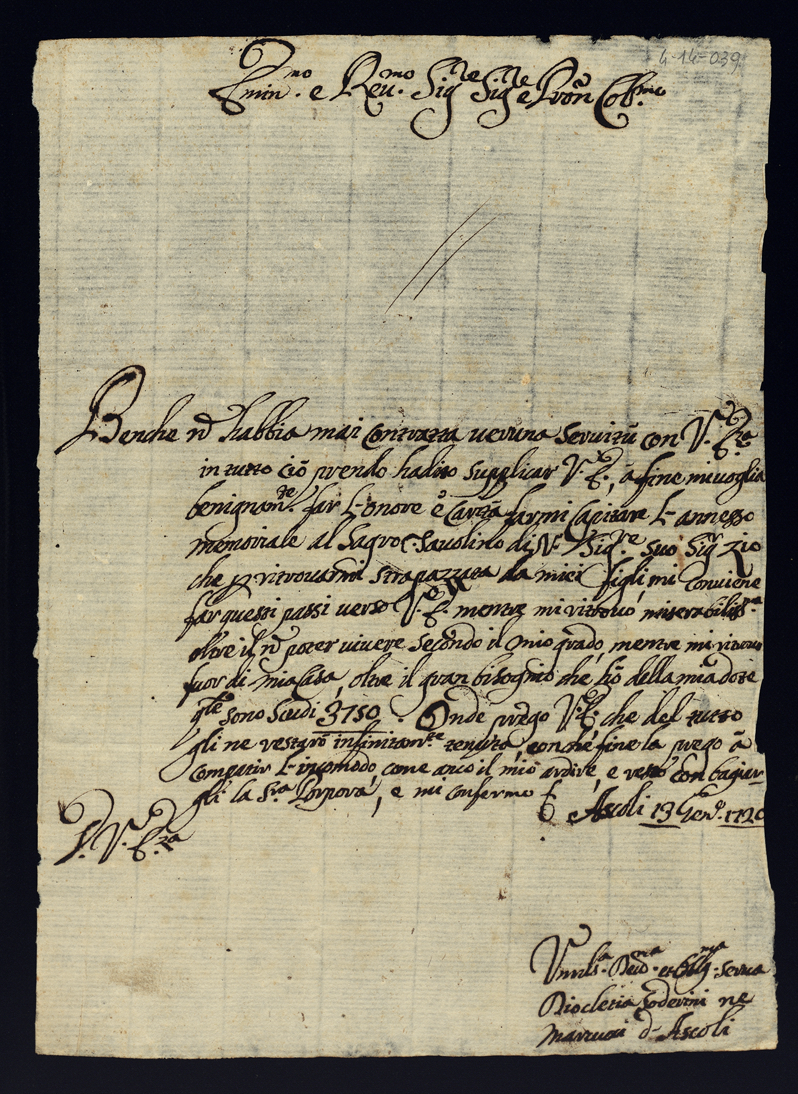 4-14-039
Emin.mo e Rev.mo Sig.re Sig.re e Pron Col.mo
Benche nõ habbia mai contratta veruna servitù con V. E.za
in tutto ciò prendo hadito supplicar V. E., à fine mi voglia
benignam.te far l'onore e carità farmi capitare l'annesso
memoriale al Sagro di V. suo Sig.r Zio
che p ritrovarmi strapazzata da miei figli, mi conviene
far questi passi verso V. E. mentre mi ritrovo miserabiliss.a
oltre il nõ poter vivere secondo il mio grado, mentre mi ritrovo
fuor di mia Casa, oltre il gran bisogno che hò della mia dote
q.le sono Scudi 3750. Onde prego V. E. che del tutto
gli ne restarò infinitam.te tenuta, con che fine la prego à
compatir l'incomodo, come anco il mio ardire, e resto con bagiar
gli la S.ra Porpora, e mi confermo Ascoli 13 Gen.o 1720
D. V. E.za
Umilis.a Dev.ma et Obg.ma Serva
Diocletia Soderini ne
Marcucci d'Ascoli